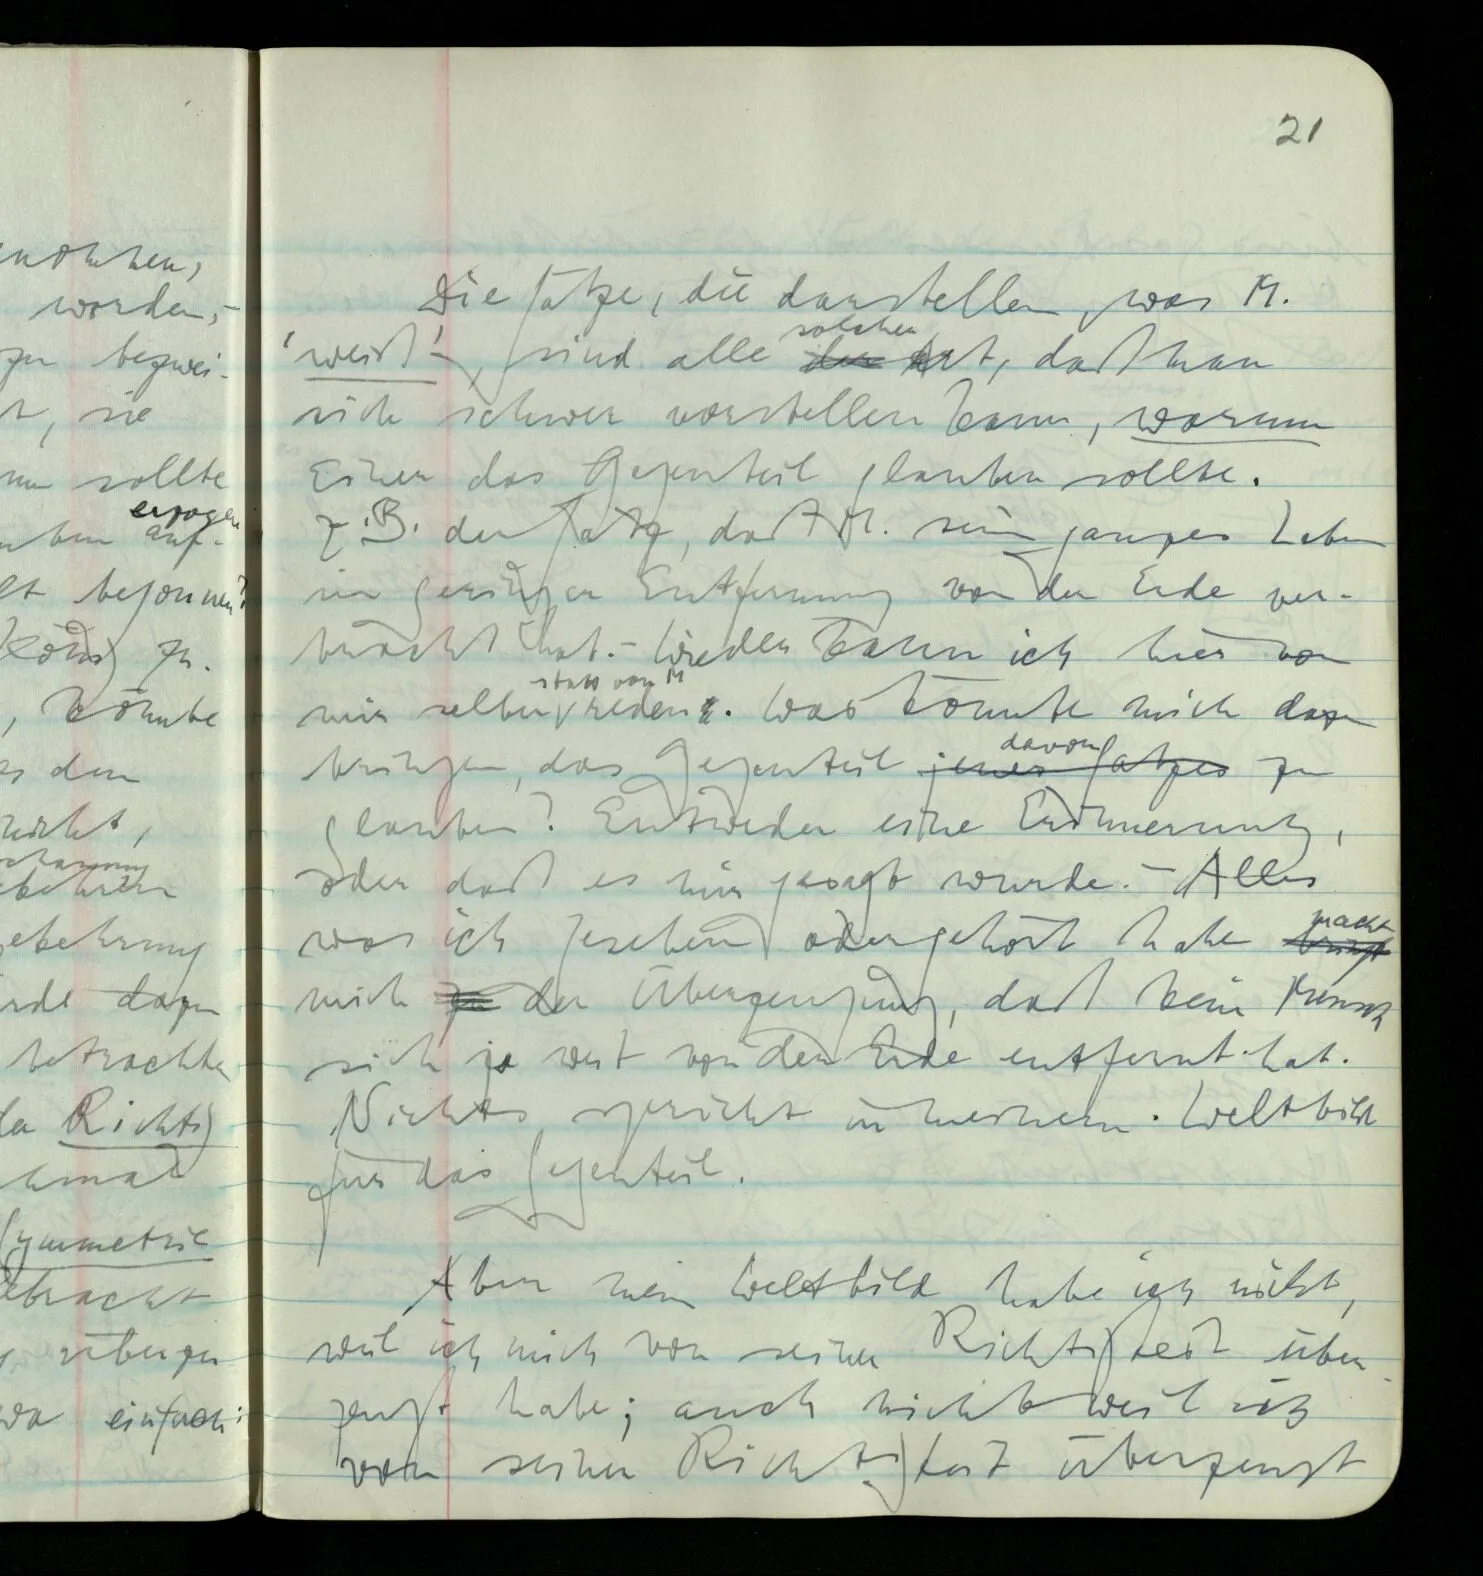 21
nommen,
worden,–
zu bezwei-
t, sie
sollte
erzogen
auf-
begonnen?
zu.
, könnte
den
nicht,
bekehren
Bekehrung
würde dazu
betrachten
Richtig
chmal
Symmetrie
gebracht
überzeu
einfach:
Die Sätze, die darstellen, was M.
'weiß', sind alle solcher der Art, daß man
sich schwer vorstellen kann, warum
Einer das Gegenteil glauben sollte.
Z.B. der Satz, daß M. sein ganzes Leben
in geringer Entfernung von der Erde ver-
bracht hat. – Wieder kann ich hier von
mir selber statt von M reden. Was könnte mich dazu
bringen, das Gegenteil jenes Satzes davon zu
glauben? Entweder eine Erinnerung,
oder daß es mir gesagt wurde. – Alles
was ich gesehen oder gehört habe bringt macht
mich zu der Überzeugung, daß kein Mensch
sich je weit von der Erde entfernt hat.
Nichts spricht in meinem Weltbild
für das Gegenteil.
Aber mein Weltbild habe ich nicht,
weil ich mich von seiner Richtigkeit über-
zeugt habe; auch nicht weil ich
von seiner Richtigkeit überzeugt